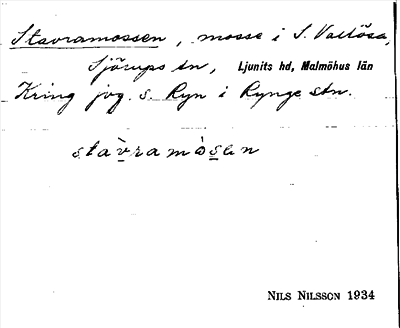 Stavramossen, mosse i S. Vallösa,
Sjörups sn, Ljunits hd, Malmöhus län
Kring jvg. s. Ryn i Rynge stn.
stàvramòsen
NILS NILSSON 1934